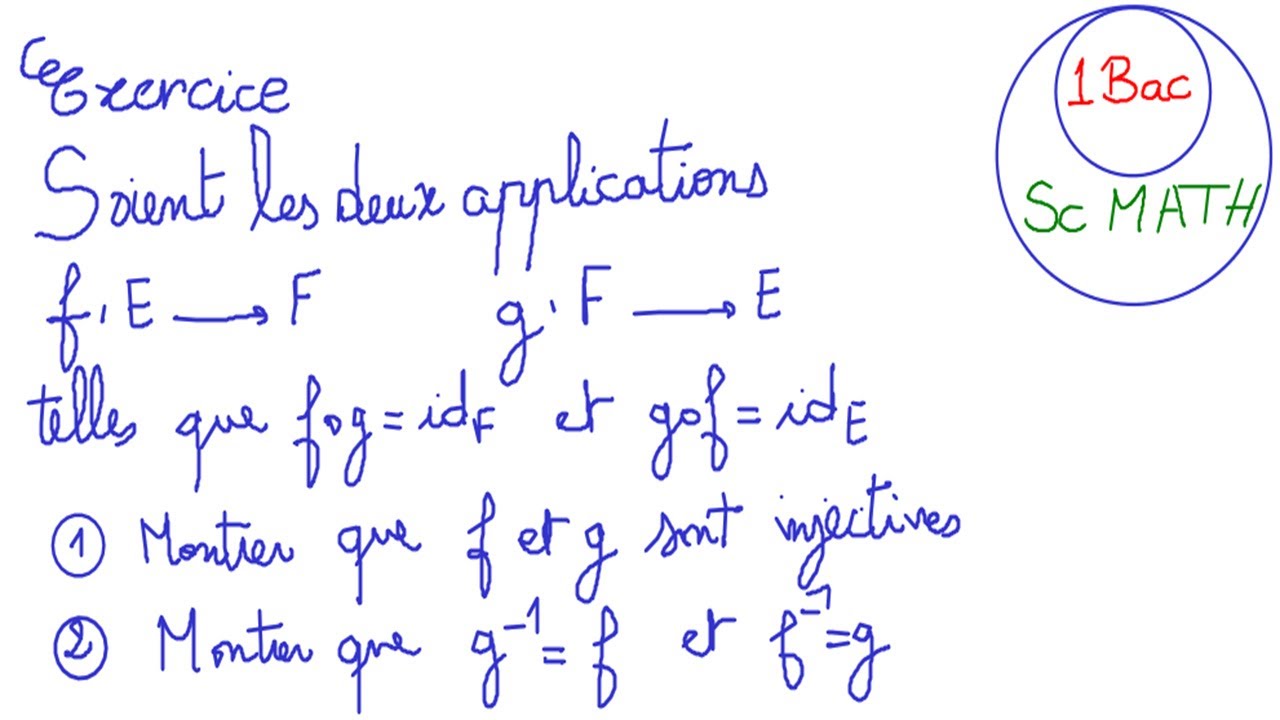 Exercice
1 Bac
Sc MATH
Soient les deux applications
f : E ⟶ F g : F ⟶ E
telles que fog = id_F et gof = id_E
① Montrer que f et g sont injectives
② Montrer que g⁻¹ = f et f⁻¹ = g